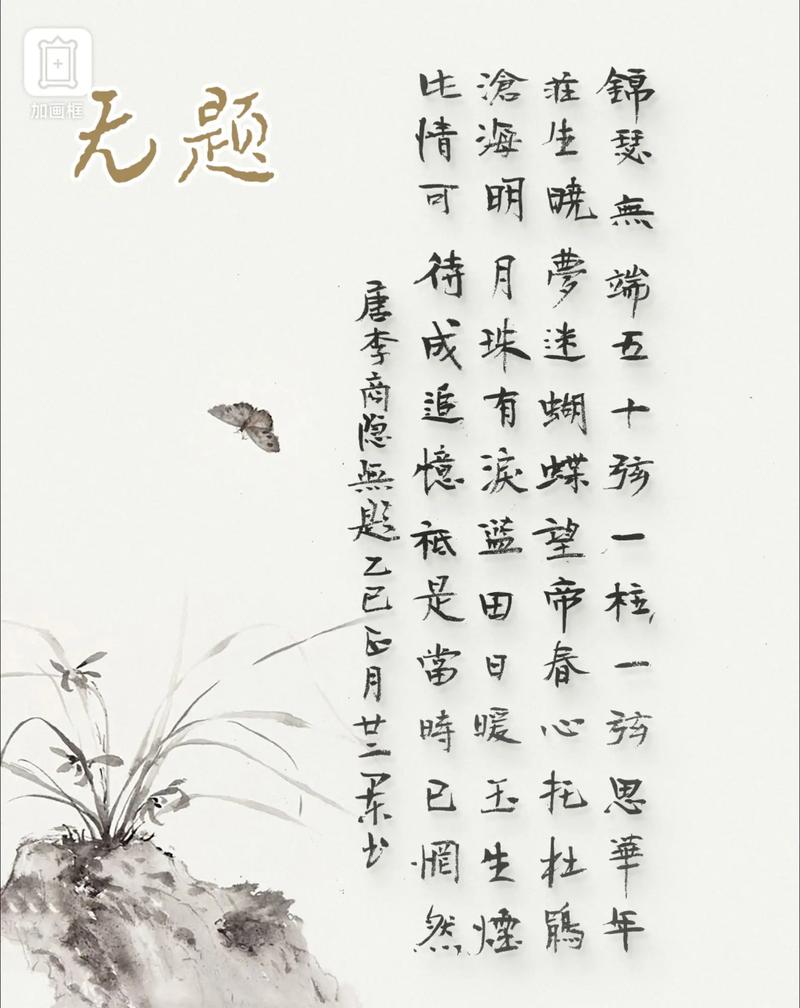 加画框
无题
錦瑟無端五十弦一柱一弦思華年
莊生曉夢迷蝴蝶望帝春心托杜鵑
滄海明月珠有淚蓝田日暖玉生煙
比情可待成追憶祗是當時已惘然
唐李商隐無題乙巳正月廿二 书